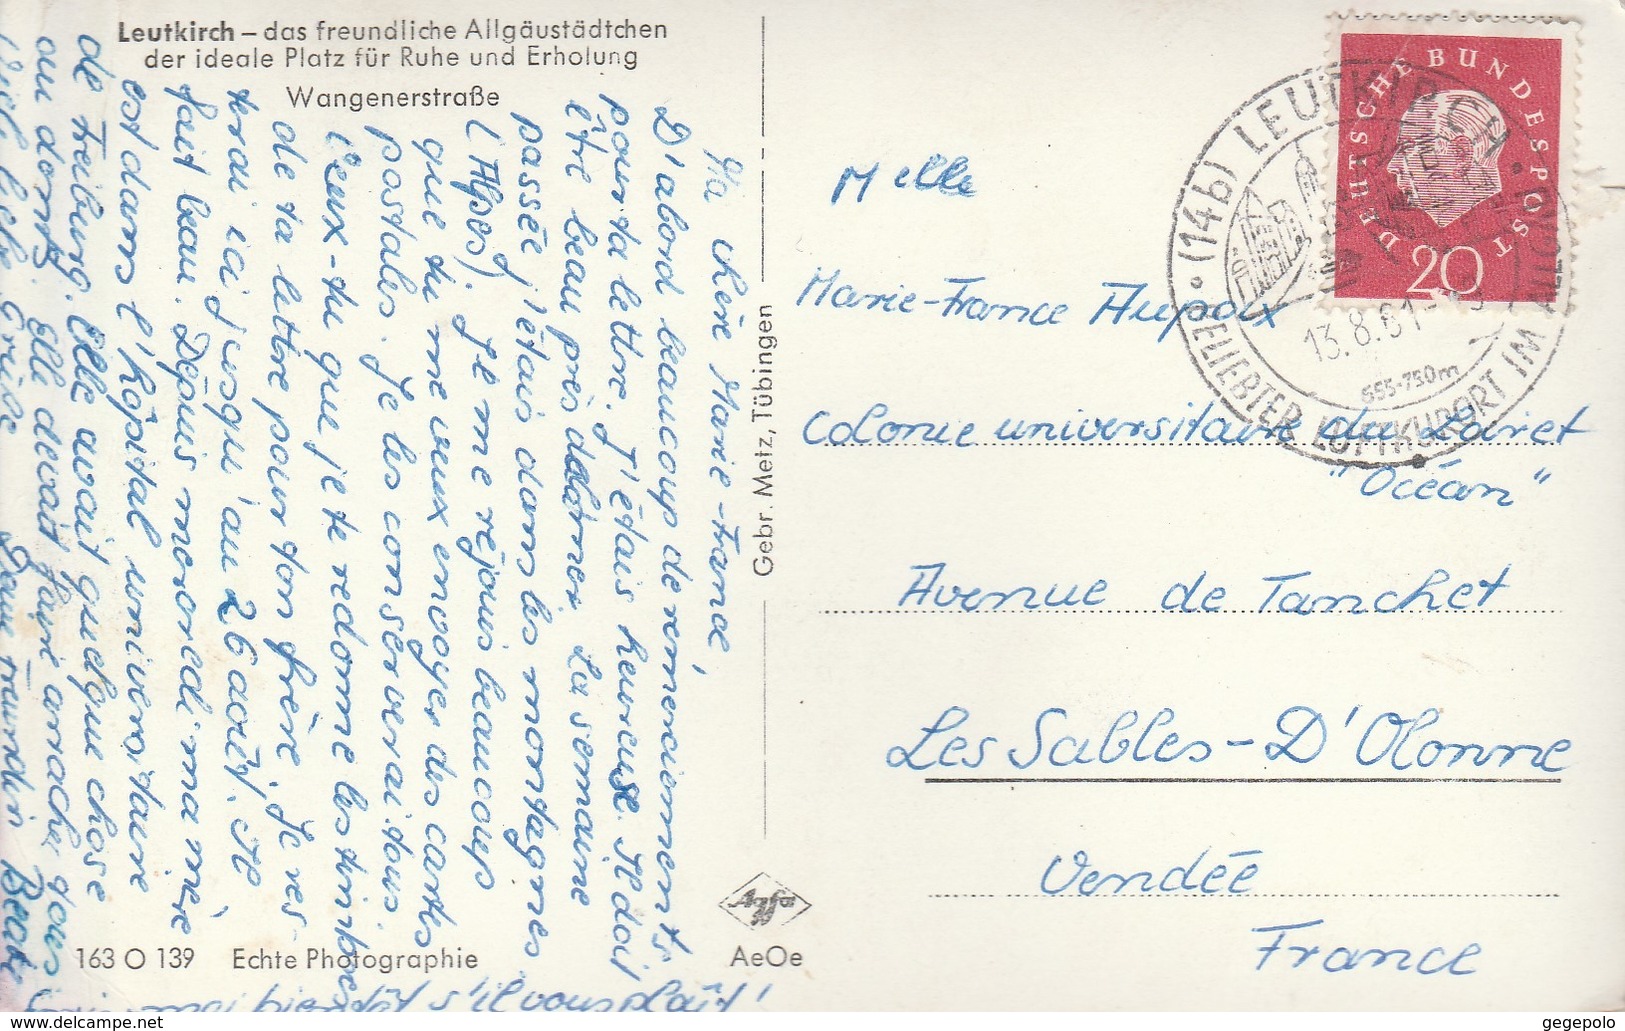 Leutkirch – das freundliche Allgäustädtchen
der ideale Platz für Ruhe und Erholung
Wangenerstraße
Ma chère Marie-France,
D'abord beaucoup de remerciements
pour ta lettre. J'étais heureuse. Il doit
être beau près de la mer. La semaine
passée j'étais dans les montagnes
(Alpes). Je me réjouis beaucoup
que tu me veux envoyer des cartes
postales. Je les conserverai tous.
Veux-tu que je te redonne les timbres
de ta lettre pour ton frère. Je res-
terai ici jusqu'au 26 août. Il
fait beau. Dépuis mercredi ma mère
est dans l'hôpital universitaire
de Freiburg. Elle avait quelque chose
au dong. Elle devait faire arracher
Grüße Deine Freundin Beate
bientôt s'il vous plaît!
Gebr. Metz, Tübingen
163 O 139 Echte Photographie
Agfa
AeOe
DEUTSCHE BUNDESPOST
20
(14b) LEUTKIRCH
BELIEBTER LUFTKURORT IM ALLGÄU
13.8.61
655-750m
Melle
Marie-France Aupoix
Colonie universitaire du Loiret
"Océan"
Avenue de Tanchet
Les Sables-D'Olonne
Vendée
France
www.delcampe.net
gegepolo